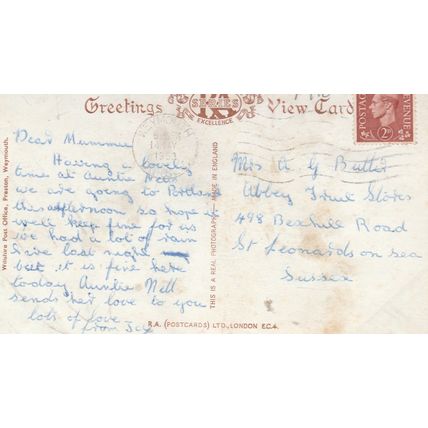 Greetings
RA
SERIES
EXCELLENCE
View Card
POSTAGE
REVENUE
2D
WEYMOUTH
Dear Mummie
Having a lovely
time at Auntie Nell
we are going to Portland
this afternoon so hope it
will keep fine for us
we had a lot of rain
here last night
but it is fine here
today Auntie Nell
sends her love to you
lots of love
from
Wiltshire Post Office, Preston, Weymouth.
THIS IS A REAL PHOTOGRAPH — MADE IN ENGLAND
Mrs A G Butler
Abbey Fruit Stores
498 Bexhill Road
St Leonards on sea
Sussex
R.A. (POSTCARDS) LTD., LONDON E.C.4.